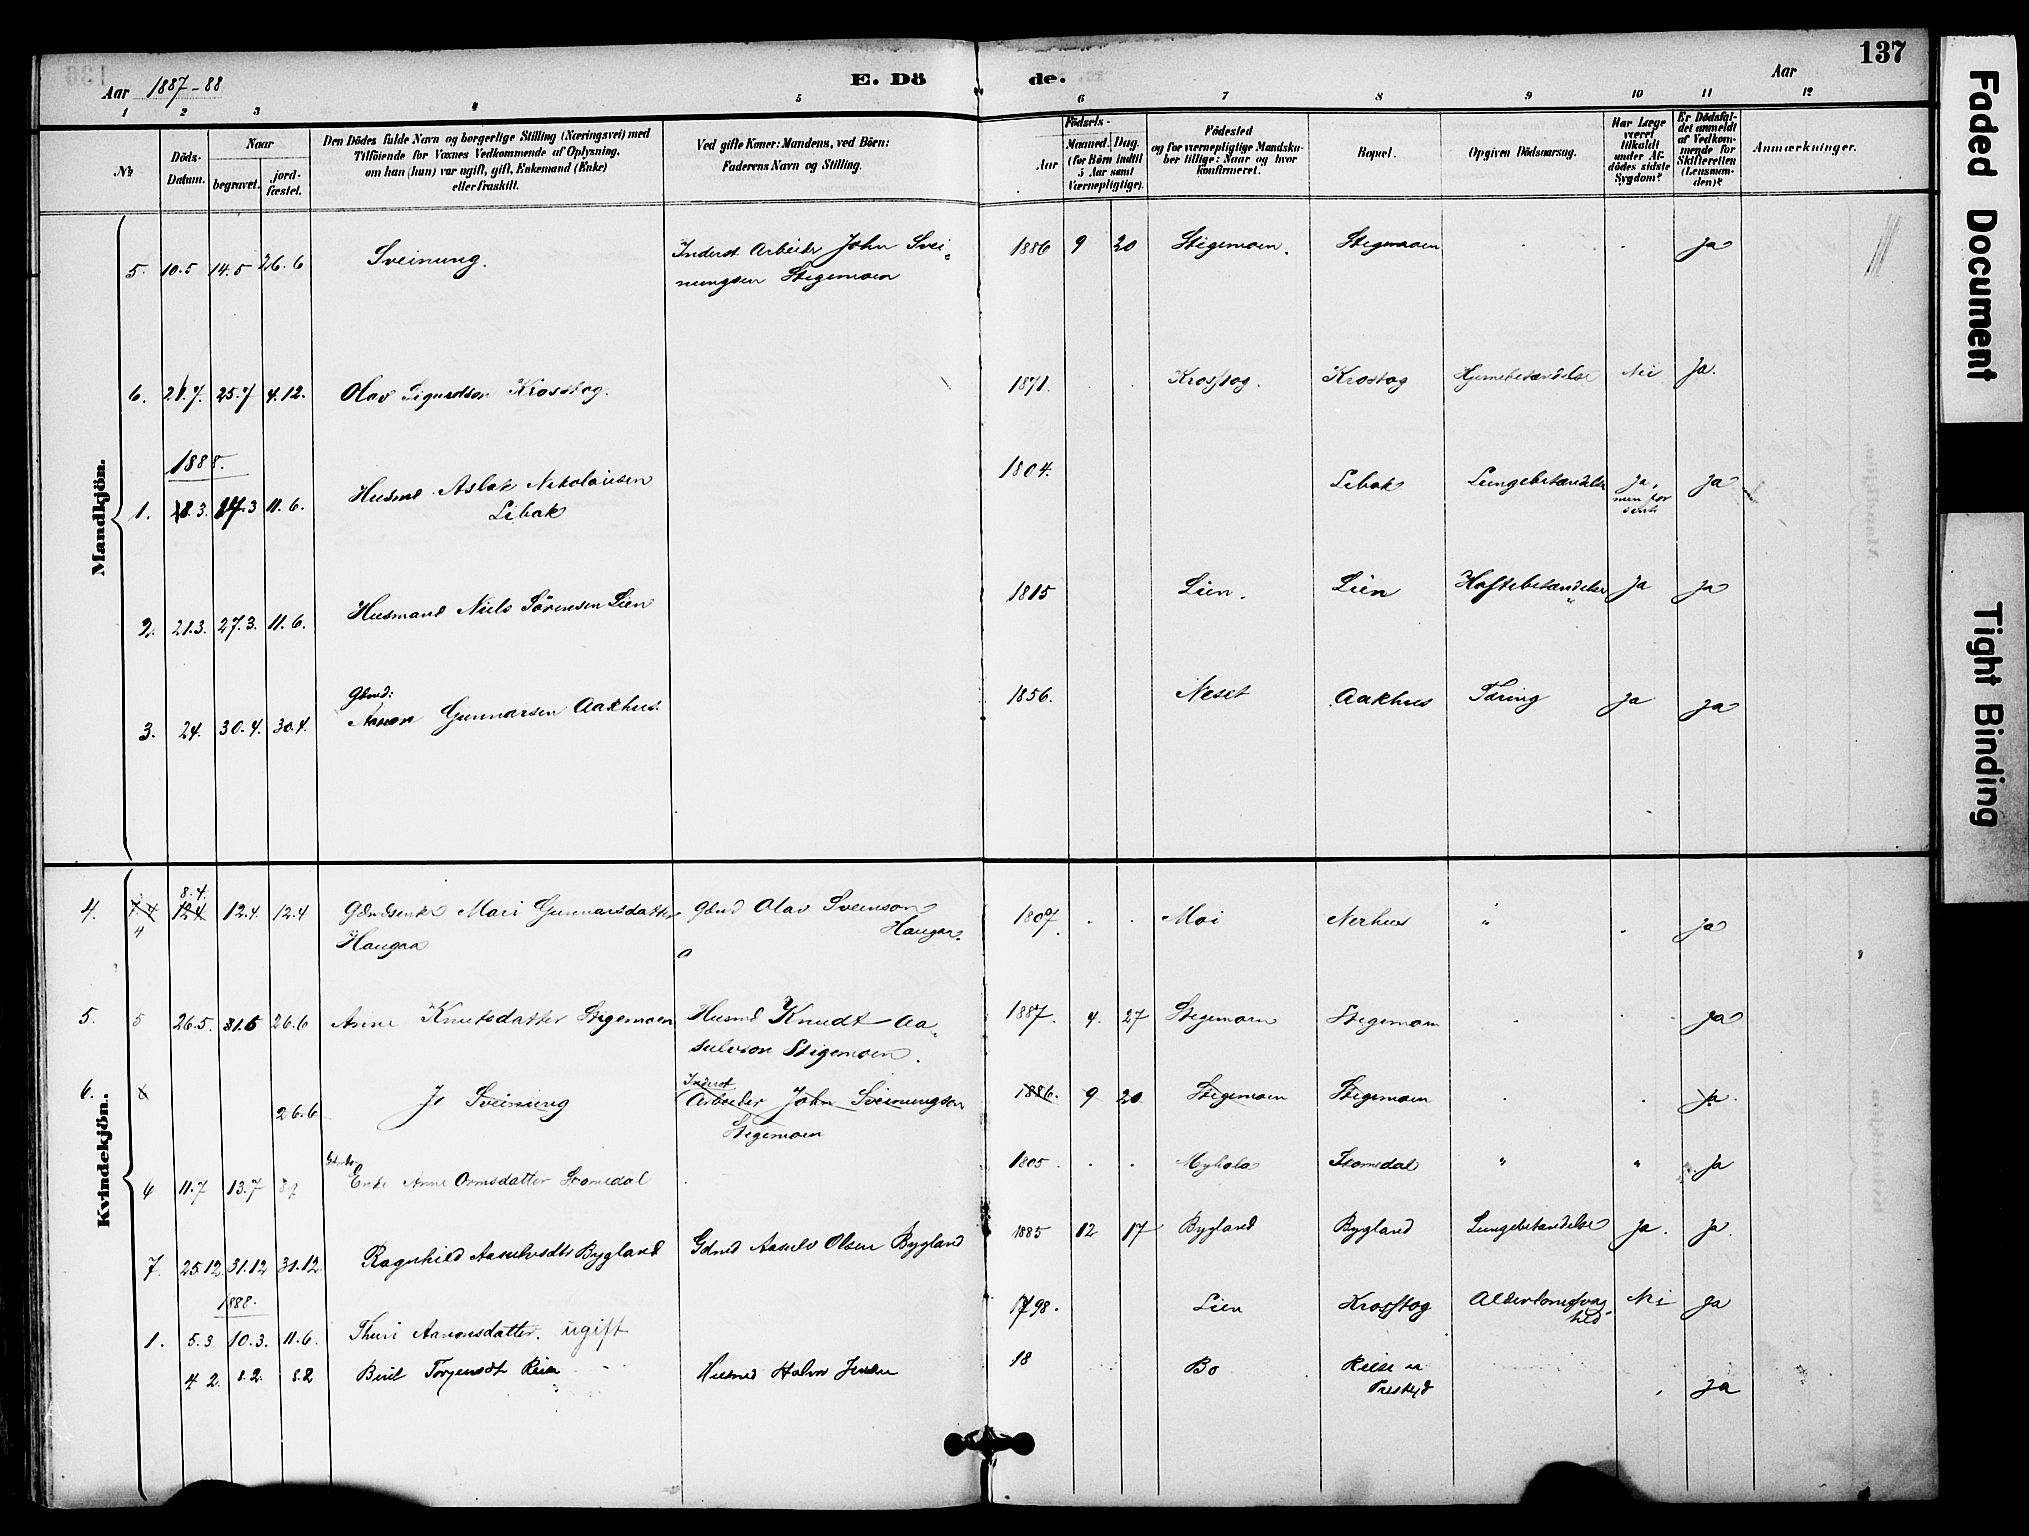 Aar 1887-88
E. Dö
de.
Aar
137
1 2 3 4 5 6 7 8 9 10 11 12
No
Döds-
Datum.
Naar
begravet.
jord-
fæstet.
Den Dödes fulde Navn og borgerlige Stilling (Næringsvei) med
Tilföiende for Voxnes Vedkommende af Oplysning,
om han (hun) var ugift, gift, Enkemand (Enke)
eller fraskilt.
Ved gifte Koner: Mandens, ved Börn:
Faderens Navn og Stilling.
Födsels-
Aar
Maaned. Dag
(for Börn indtil
5 Aar samt
Værnepligtige).
Födested
og for værnepligtige Mandska-
ber tillige: Naar og hvor
konfirmeret.
Bopæl.
Opgiven Dödsaarsag.
Har Læge
været
tilkaldt
under Af-
dödes sidste
Sygdom?
Er Dödsfal-
det anmeldt
af Vedkom-
mende for
Skifteretten
(Lensman-
den)?
Anmærkninger.
Mandkjön.
5. 10.5 14.5 26.6 Sveinung. Inderst Arbeider John Svei- 1886 9 20 Stigemoen. Stigemoen . . Ja
nungsen Stigemoen
6. 21.7. 25.7 4.12. Olav Sigurdson Krosstog. 1871. . . Krosstog. Krostog Hjernebetændelse Nei Ja.
1888.
1. 8.3. 17.3 11.6. Husmd Aslak Nikolaisen 1804. Libak Lungebetændelse Ja, Ja
Libak
men for
sent
2. 21.3. 27.3. 11.6. Husmand Niels Sörensen Lien 1815 Lien. Lien Hoftebetændelse Ja Ja
Gbmd:
3. 24. 30.4. 30.4. Aanon Gunnarsen Aakhus. 1856. Neset Aakhus Tæring Ja Ja
Kvindekjön.
8.4.
4. 12.4 12.4. 12.4 Mari Gunnarsdatter Gbmd Olav Sveinson 1807. . . Moi Nerhus " . Ja
4 Haugaa Haugaa.
5. 5 26.5. 31.5 26.6 Anne Knutsdatter Stigemoen Husmd Knudt Aa- 1887. 4. 27 Stigemoen Stigemoen . . Ja
sulvson Stigemoen.
Inderst
6. 26.6 Sveinung Arbeider John Sveinungson 1886. 9 20 Stigemoen Stigemoen . . Ja
Stigemoen
6 11.7 13.7 Enke Anne Ormsdatter Stomedal 1805. . . Stomedal " " Ja
7. 25.12 31.12 31.12. Ragnhild Aasulvsdtr Bygland Gdmd Aasulv Olsen Bygland 1885 12 17 Bygland Bygland Lungebetændelse Ja. Ja.
1888.
1. 5.3 10.3. 11.6. Thuri Aanonsdatter. ugift 1798. Lien Krosstog Nei Ja
4 2. 8.2. 8.2 18 Bo Ja
Husmd Halvor Jensen
Faded Document
Tight Binding